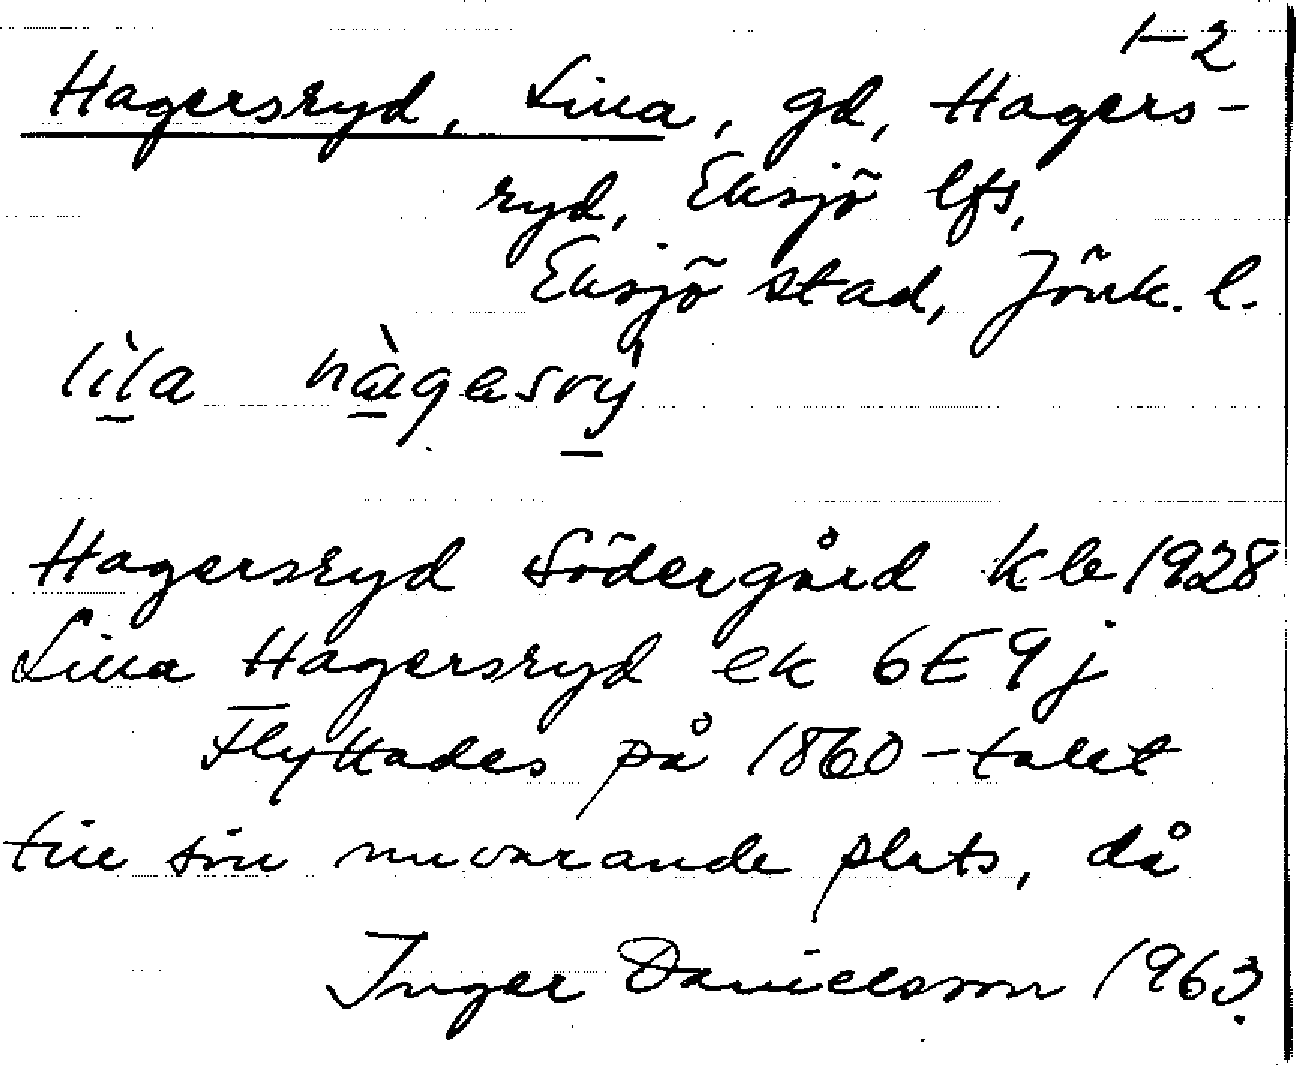 1–2
Hagersryd, Lilla, gd, Hagers-
ryd, Eksjö lfs,
Eksjö stad, Jönk. l.
Hagersryd Södergård kb 1928
Lilla Hagersryd ek 6E9j
Flyttades på 1860-talet
till sin nuvarande plats, då
Inger Danielsson 1963.